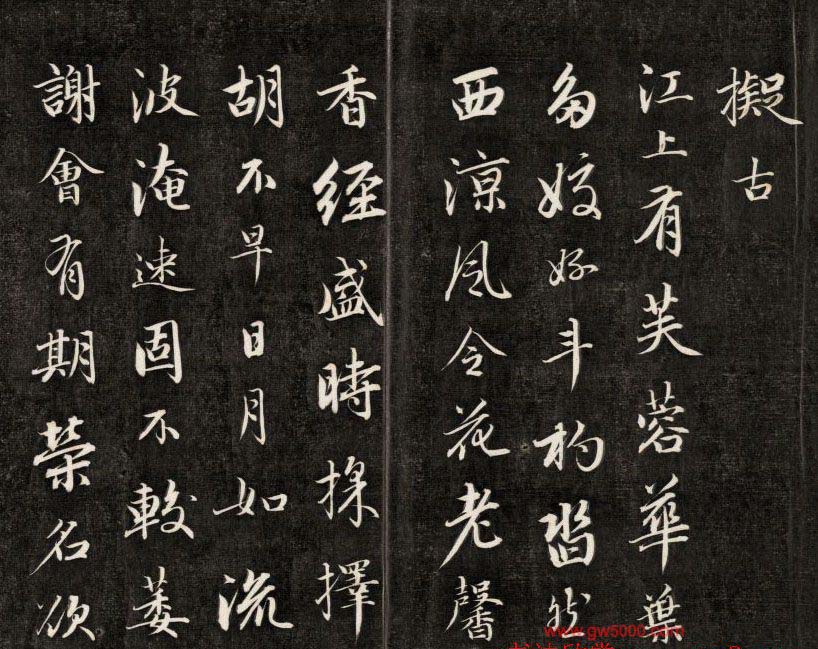 擬古
江上有芙蓉華葉
多姣好斗杓然
西涼風令花老馨
香經盛時採擇
胡不早日月如流
波淹速固不較萎
謝會有期榮名欲
www.gw5000.com